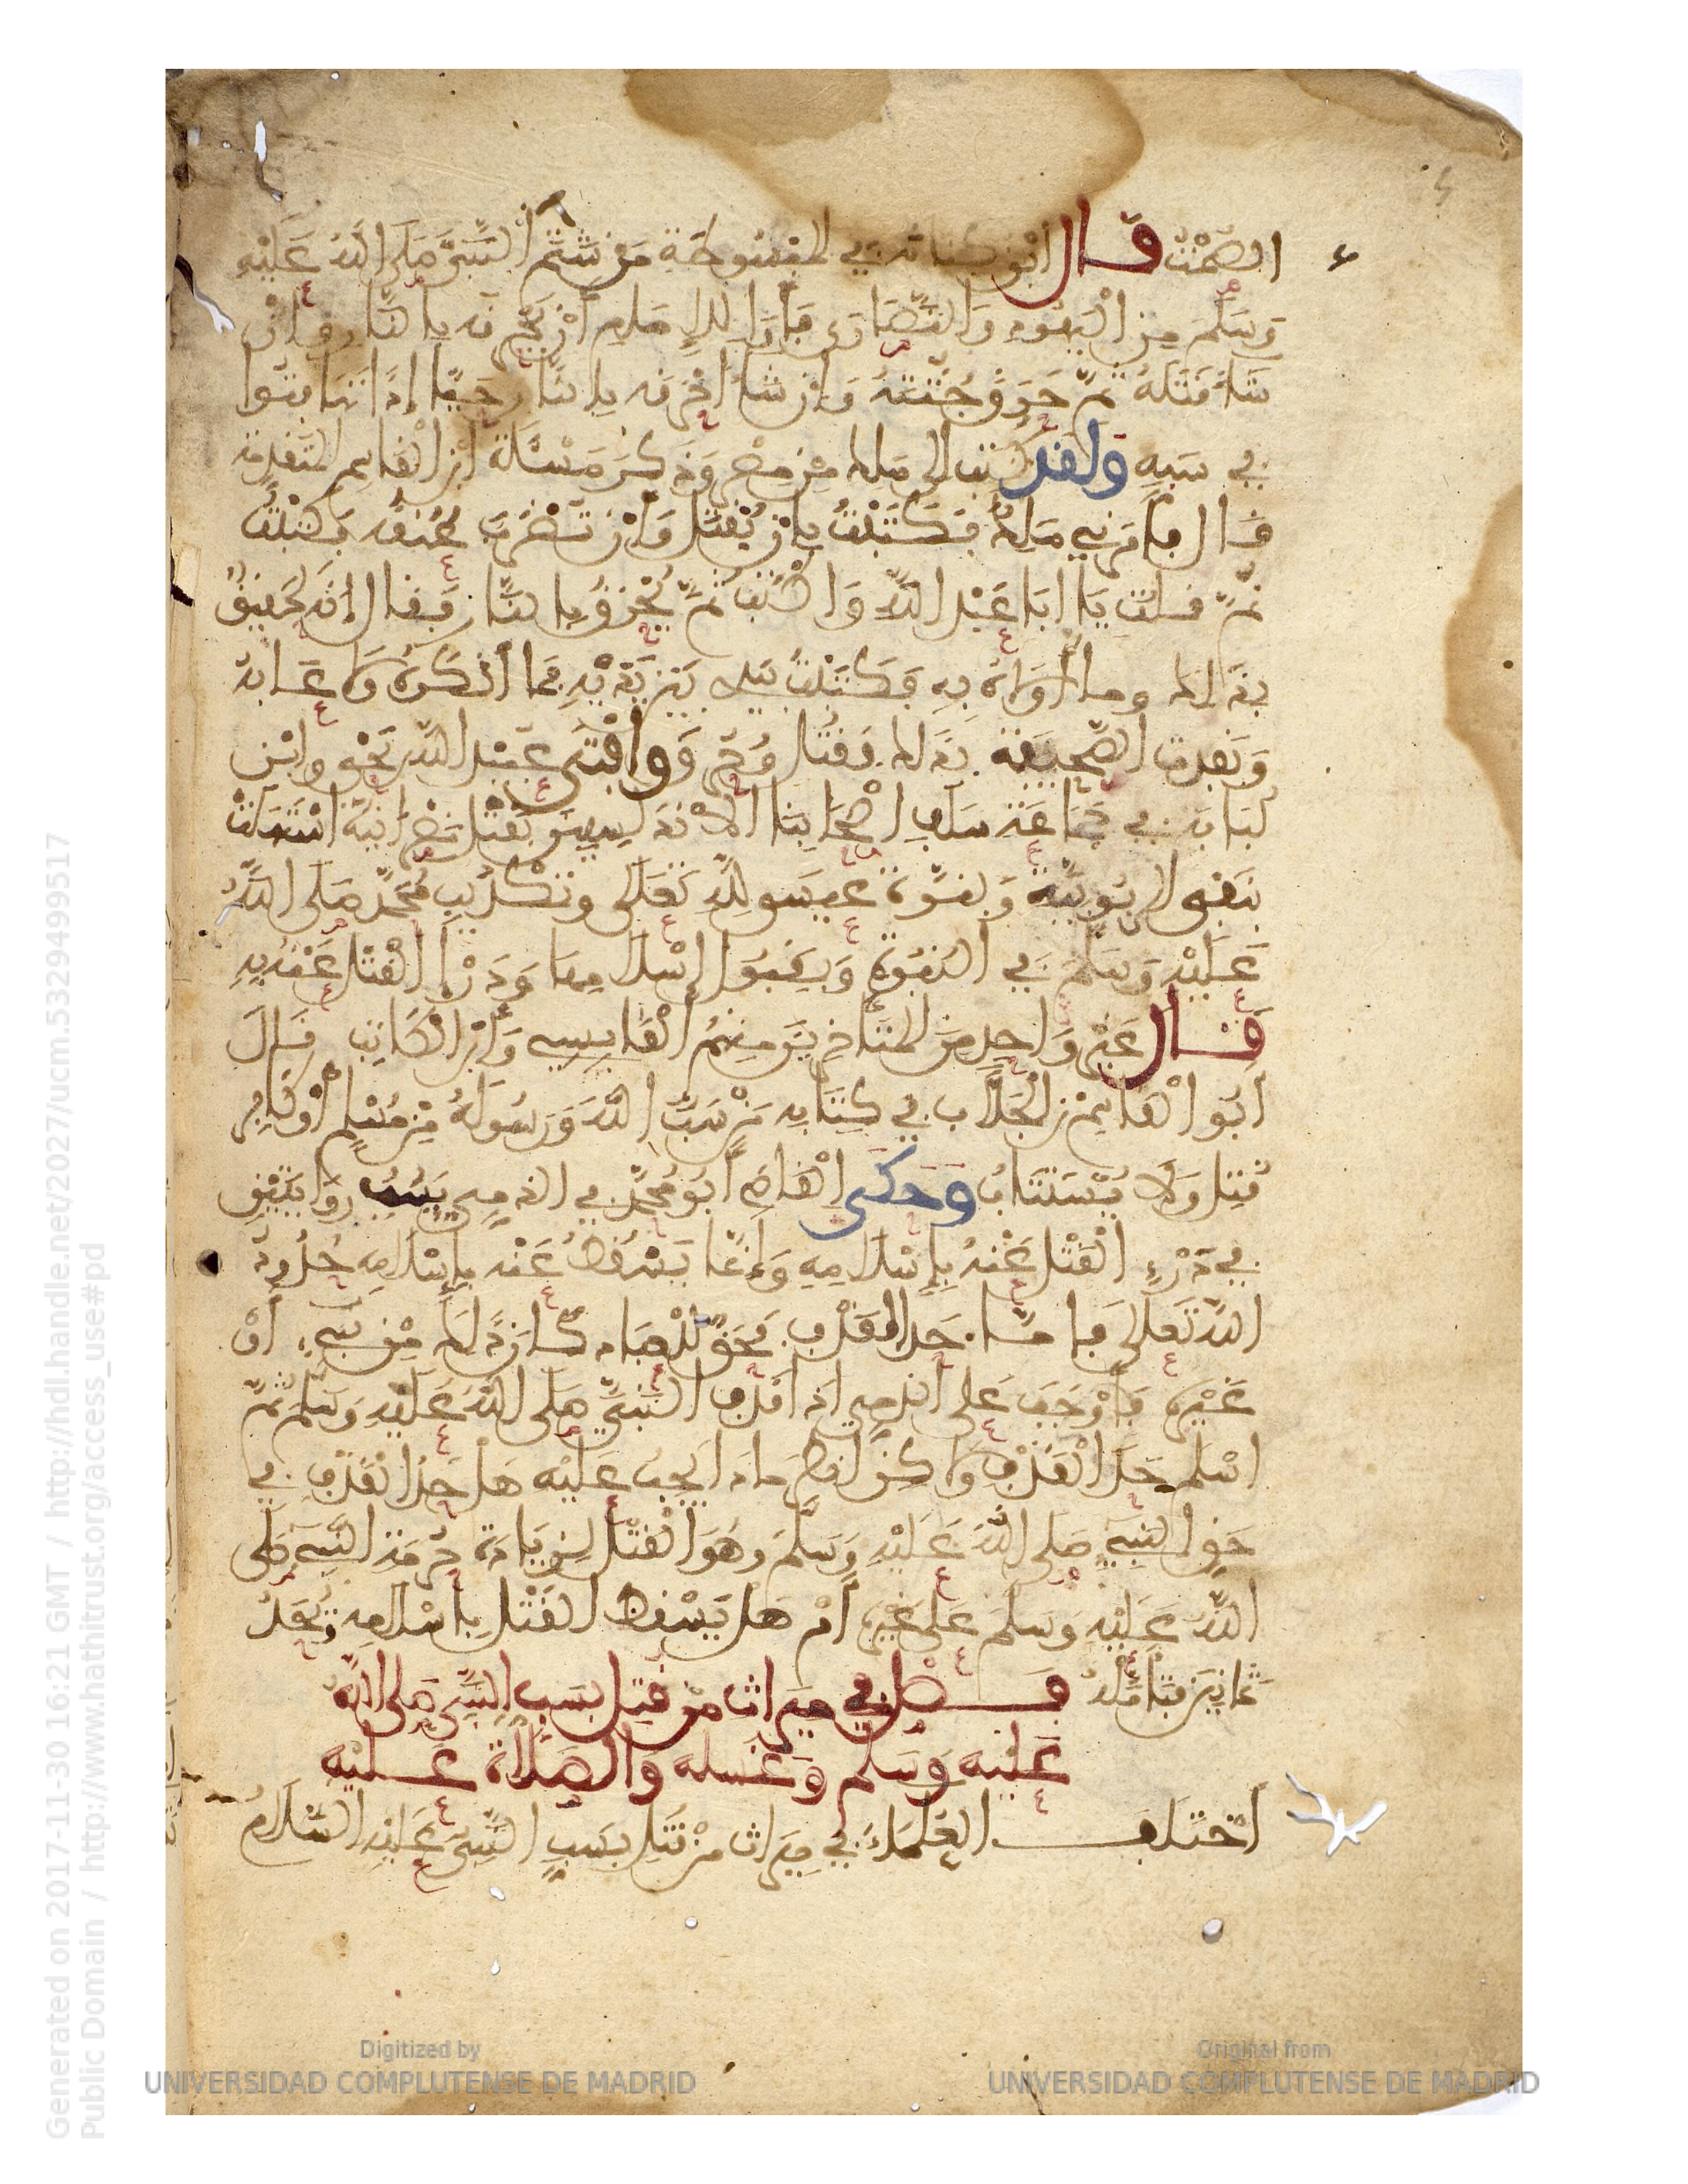 الصمت قال ابن كنانة في المبسوطة من شتم النبي صلى الله عليه
وسلم من اليهود والنصارى فأرى للإمام أن يحرقه بالنار وإن
شاء قتله ثم حرق جثته وإن شاء أحرقه بالنار حيا إذا تهافتوا
في سبه ولقد كتب الى مالك من مصر وذكر مسئلة ابن القاسم المتقدمة
قال فأمرني مالك فكتبت بان يقتل وأن تضرب عنقه فكتبت
ثم قلت يا ابا عبد الله واكتب ثم يحرق بالنار فقال إنه لحقيق
بذلك وما أولاه به فكتبت بيدي بين يديه فما أنكره ولا عابه
ونفدت الصحيفة بذلك فقتل وحرق وأفتى عبيد الله بن يحيى وابن
لبابة في جماعة سلف اصحابنا الاندلسيين بقتل نصرانية استهلت
بنفي الربوبية وبنوة عيسى لله تعالى وتكذيب محمد صلى الله
عليه وسلم في النبوة وبقبول إسلامها ودرإ القتل عنها به
قال غير واحد من المتأخرين منهم القابسي وابن الكاتب قال
ابو القاسم بن الجلاب في كتابه من سب الله ورسوله من مسلم أو كافر
قتل ولا يستتاب وحكى القاضي أبو محمد في الذمي يسب روايتين
في درء القتل عنه بإسلامه وإنما يسقط عنه بإسلامه حدود
الله تعالى فاما حد القذف فحق للعباد كان ذلك من نبي أو
غيره فأوجب على الذمي اذا قذف النبي صلى الله عليه وسلم ثم
اسلم حد القذف ولاكن انظر ماذا يجب عليه هل حد القذف في
حق النبي صلى الله عليه وسلم وهو القتل لزيادة حرمة النبي صلى
الله عليه وسلم على غيره أم هل يسقط القتل باسلامه ويحد
ثمانين فتأمله فصل في ميراث من قتل بسب النبي صلى الله
عليه وسلم وغسله والصلاة عليه
اختلف العلماء في ميراث من قتل بسب النبي عليه السلام
Generated on 2017-11-30 16:21 GMT / http://hdl.handle.net/2027/ucm.5329499517
Public Domain / http://www.hathitrust.org/access_use#pd
Digitized by
UNIVERSIDAD COMPLUTENSE DE MADRID
Original from
UNIVERSIDAD COMPLUTENSE DE MADRID